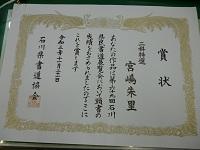 賞状
二科特選
宮嶋朱里
あなたの作品は第六十九回石川
県民書道展覧会において頭書の
成績をおさめられましたのでここに
賞します
令和三年十一月二十三日
石川県書道協会